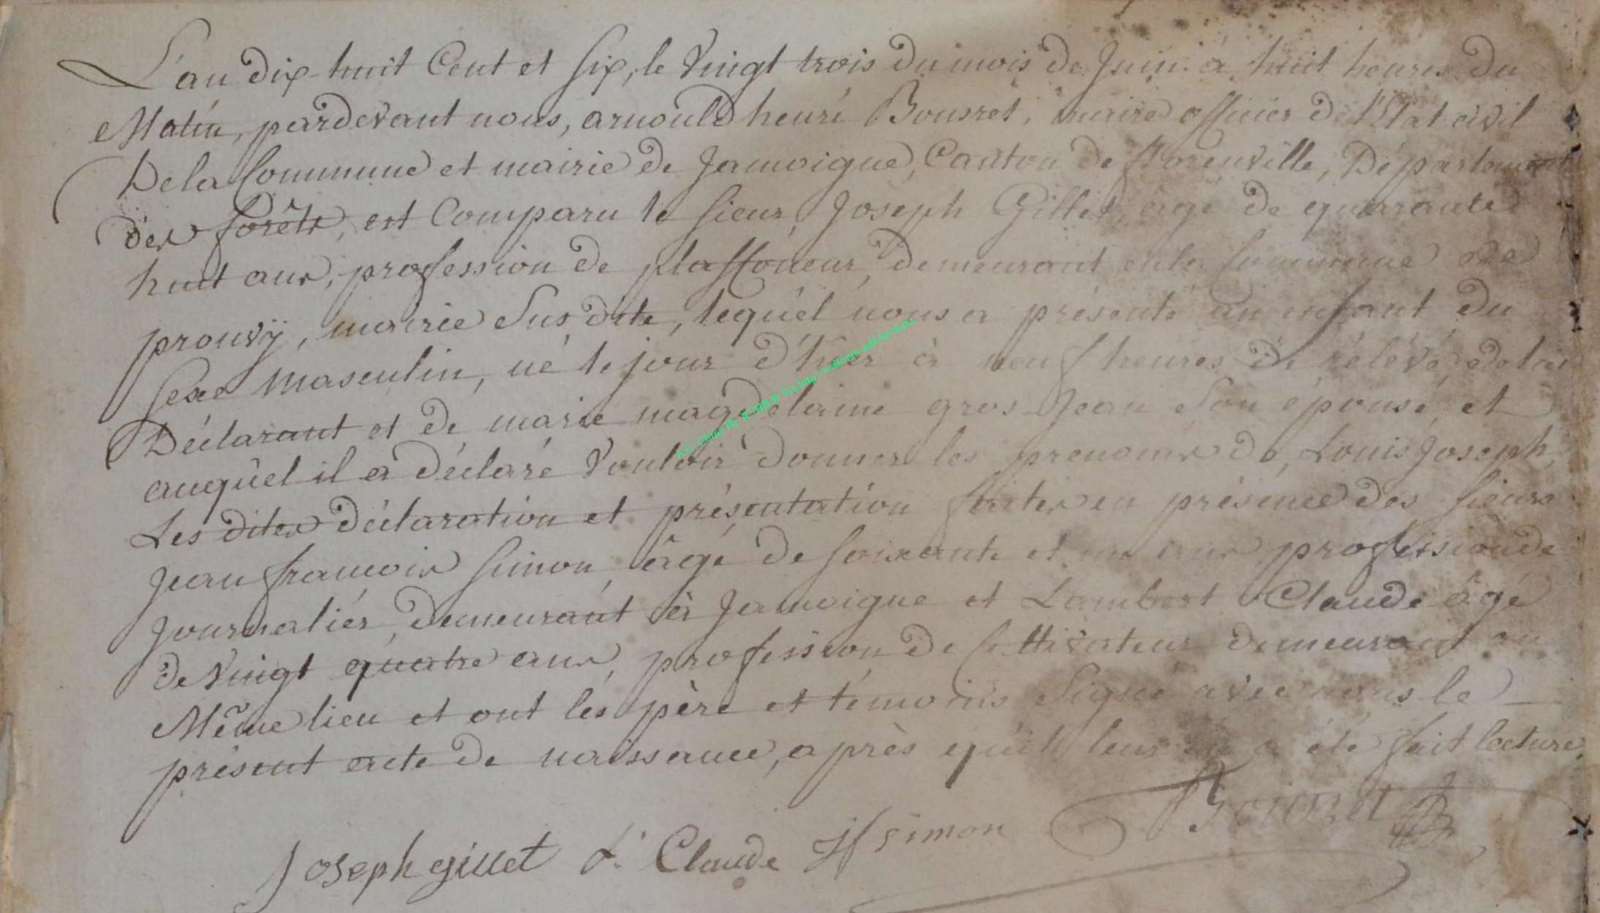 L'an dix huit Cent et Six, le Vingt trois du mois de Juin à huit heures du
Matin, pardevant nous, arnould henri Bousret, maire officier de l'Etat civil
De la Commune et mairie de Jamoigne, Canton de florenville, Département
des forêts, est Comparu le sieur Joseph Gillet, âgé de quarante
huit ans, profession de plaffoneur, demeurant en la Commune de
prouvÿ, mairie Sus dite, lequel nous a présenté un enfant du
sexe masculin, né le jour d'hier à neuf heures de rélévé de lui
Déclarant et de marie magdelaine gros Jean son épouse et
auquel il a déclaré Vouloir donner les prenoms de Louis Joseph,
Les dites déclaration et présentation faites en présence des sieurs
Jean françois Simon, âgé de soixante et un ans profession de
Journalier, demeurant à Jamoigne et Lambert Claude âgé
de Vingt quatre ans, profession de Cultivateur demeurant au
Même lieu et ont les père et témoins Signé avec nous le
présent acte de naissance, après qu'il leur en a été fait lecture.
Joseph gillet L. Claude Jf simon